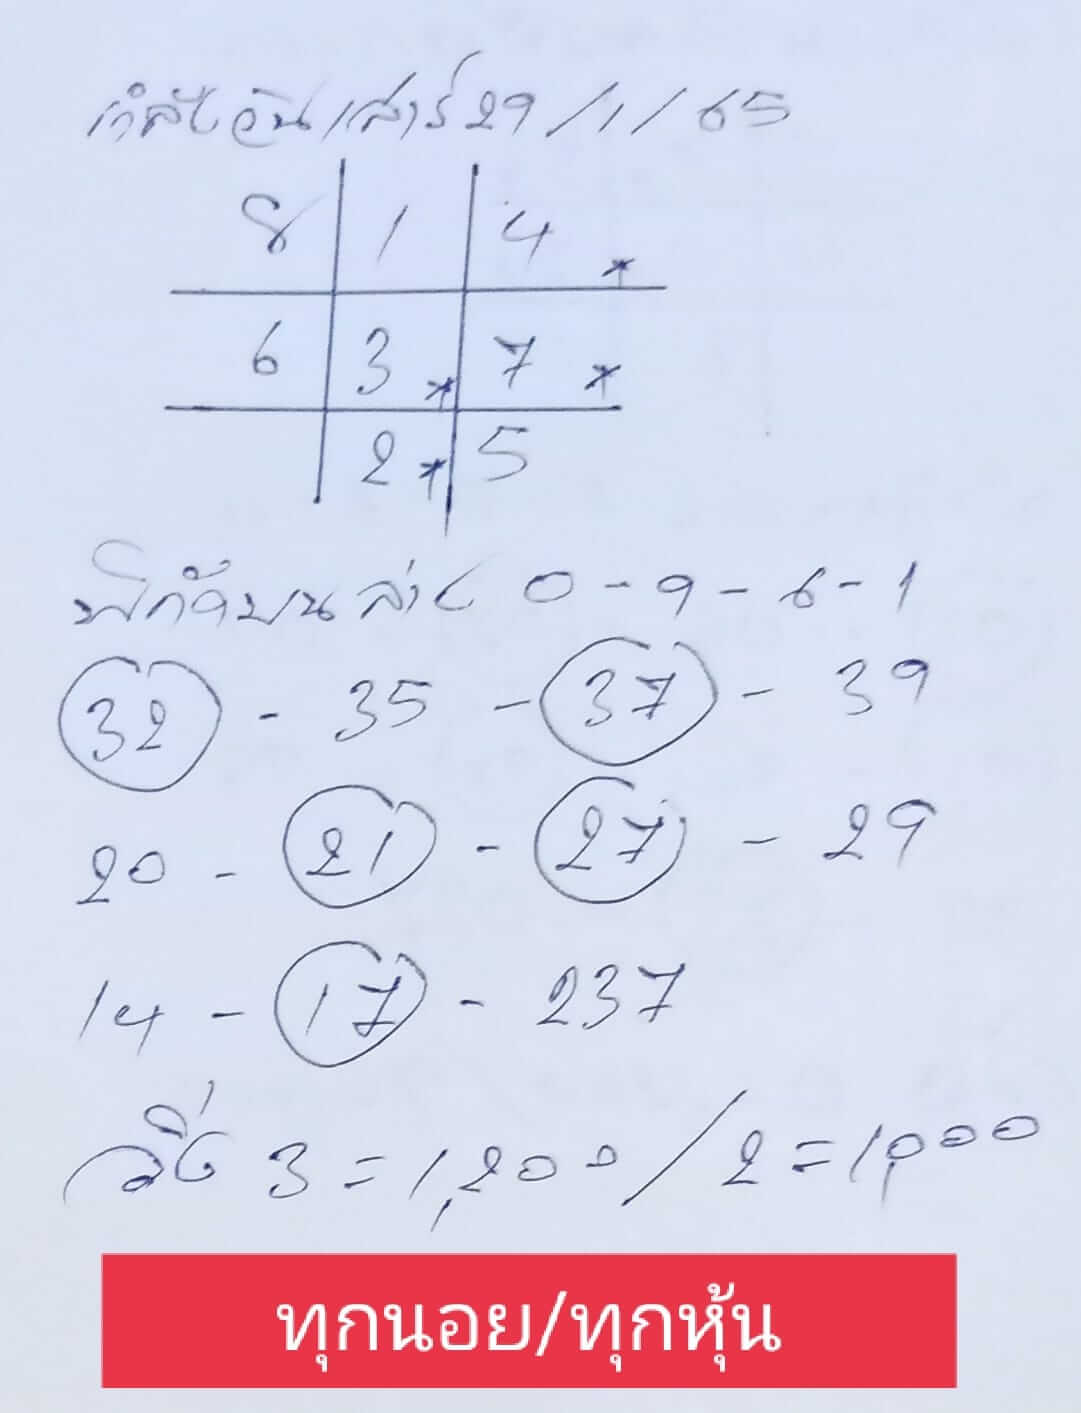 กำลังวันเสาร์ 29/1/65
8 1 4 *
6 3 * 7 *
2 * 5
พิกัดบนล่าง 0-9-6-1
32 - 35 - 37 - 39
20 - 21 - 27 - 29
14 - 17 - 237
วิ่ง 3 = 1,200 / 2 = 1,000
ทุกนอย/ทุกหุ้น